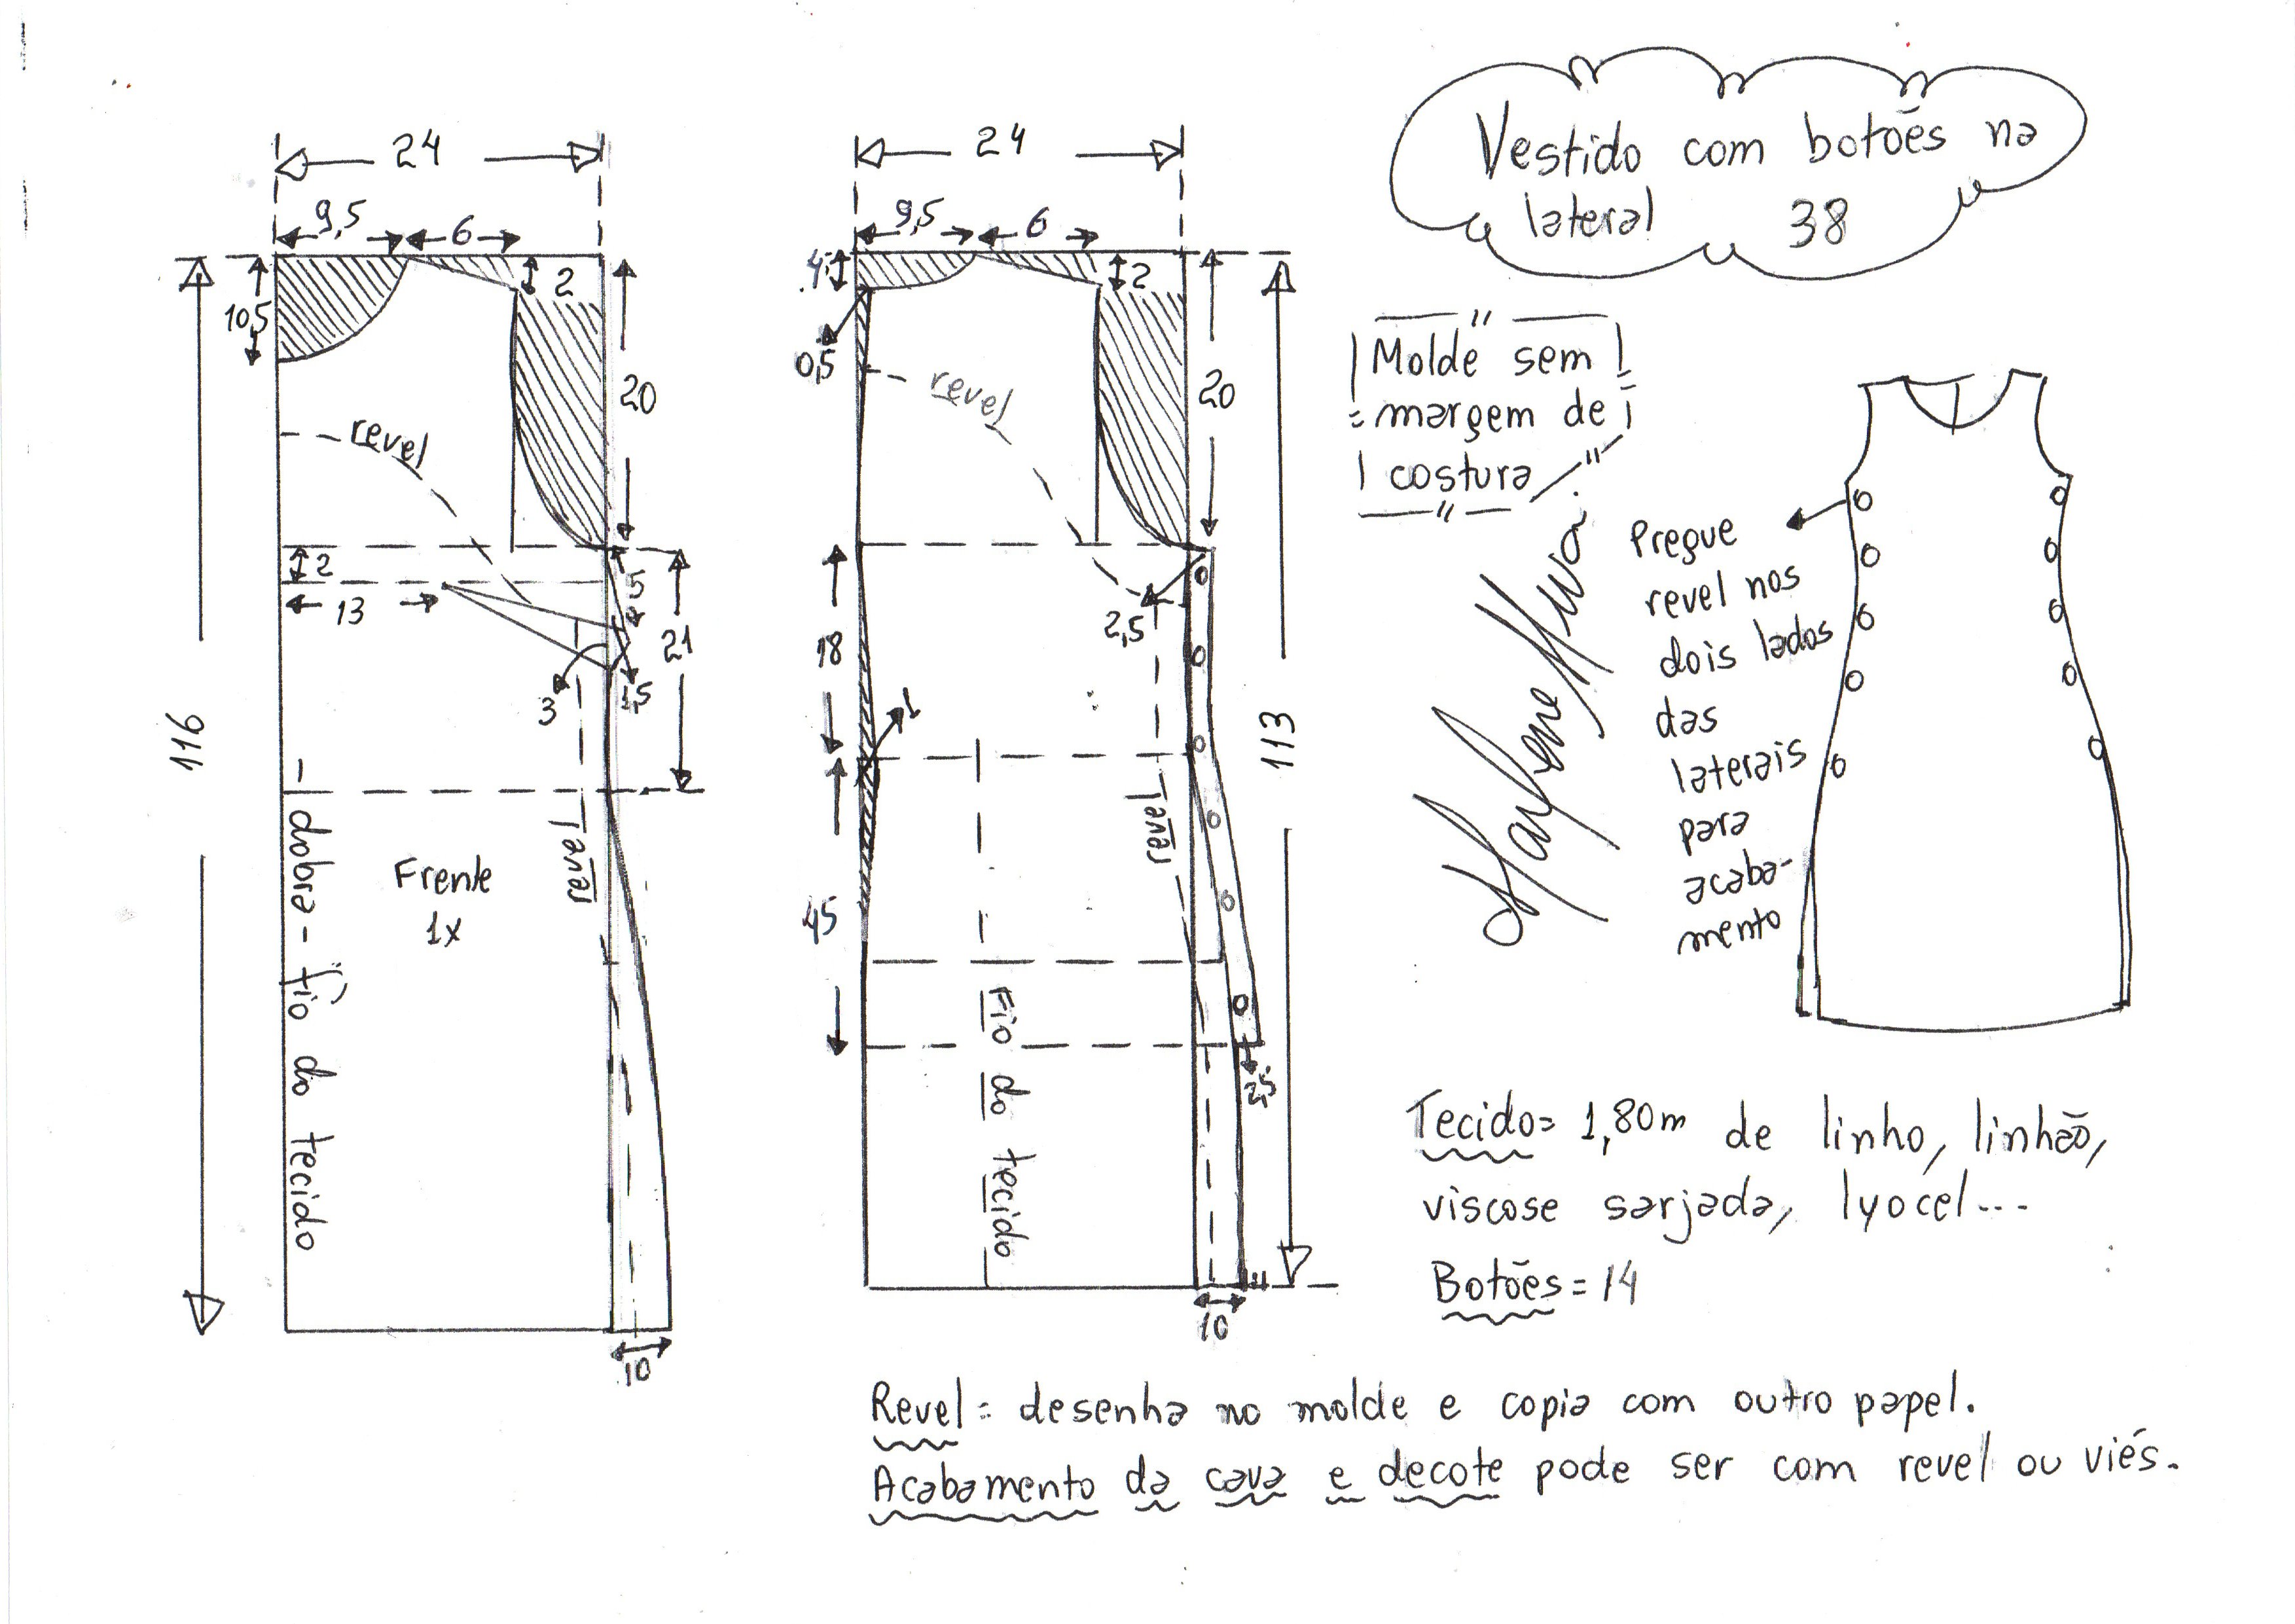 Vestido com botões na
lateral 38
Molde sem
margem de
costura
24
9,5
6
10,5
2
20
revel
2
13
5
1,5
3
21
116
Frente
1x
revel
dobra - fio do tecido
10
24
9,5
6
4
2
0,5
20
revel
2,5
18
1
45
113
revel
Fio do tecido
2,5
10
Marlene Mukai
Pregue
revel nos
dois lados
das
laterais
para
acaba-
mento
Tecido= 1,80m de linho, linhão,
viscose sarjada, lyocel...
Botões= 14
Revel= desenha no molde e copia com outro papel.
Acabamento da cava e decote pode ser com revel ou viés.